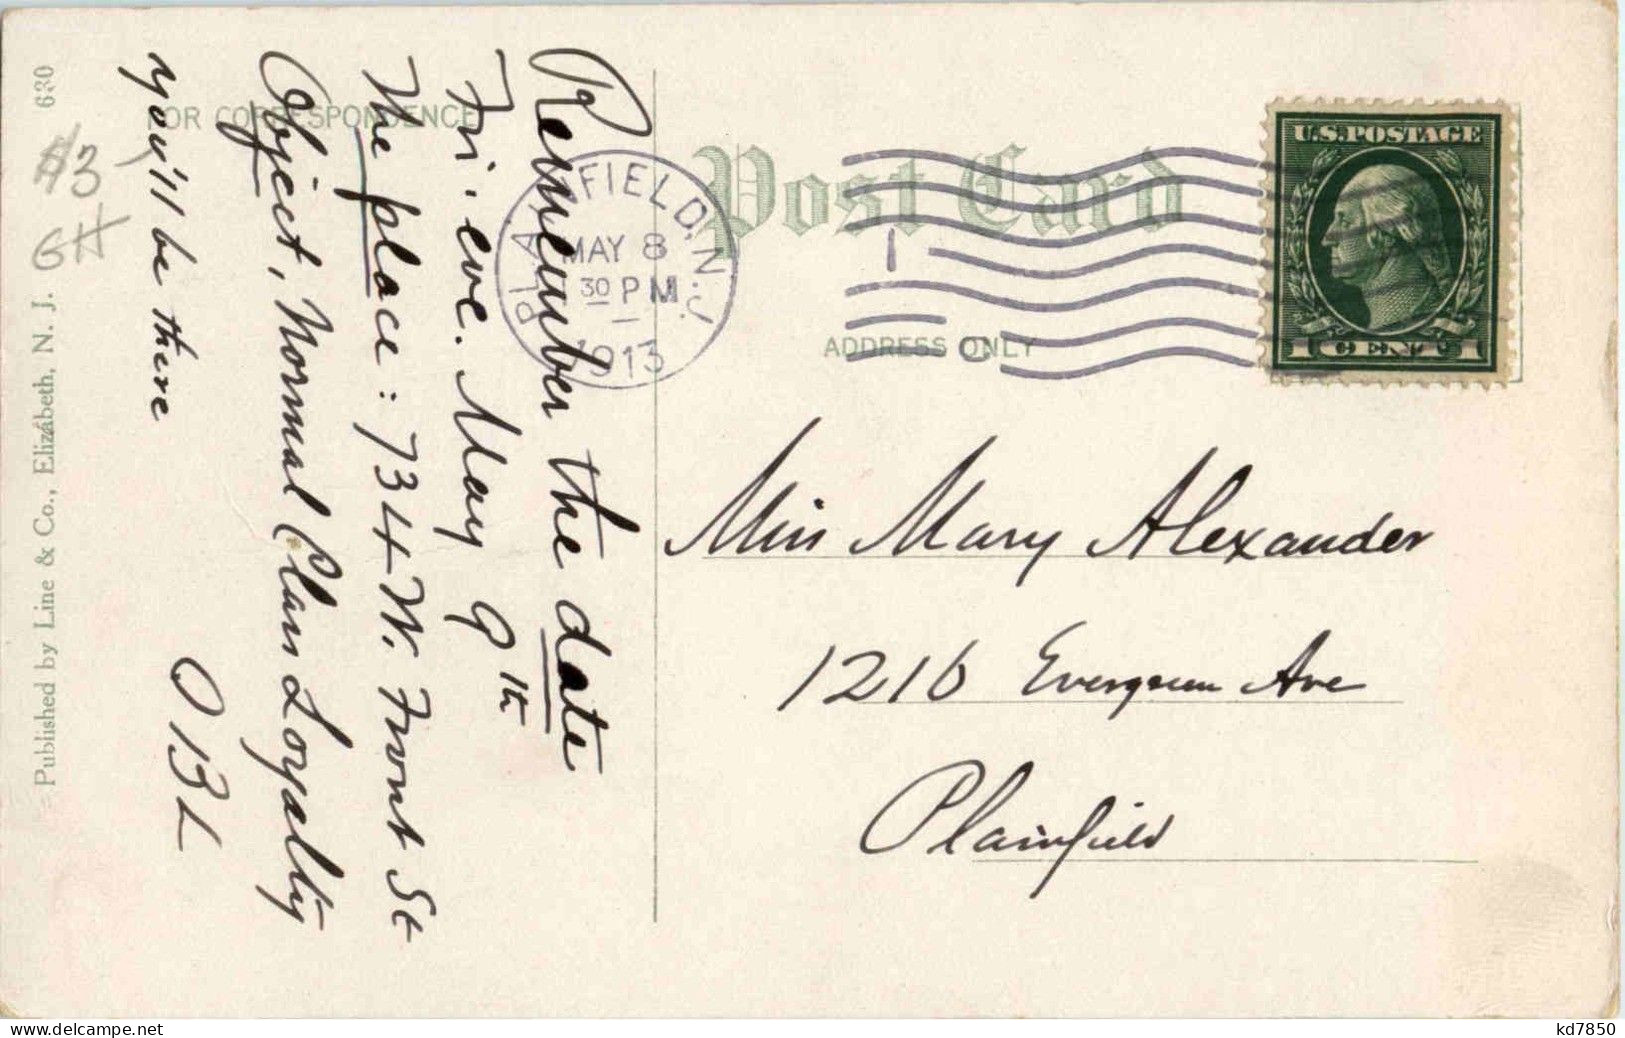 Remember the date
Fri. eve. May 9th
The place: 734 W. Front St
Object, Normal Class Loyalty
you'll be there
O B L
FOR CORRESPONDENCE
630
Published by Line & Co., Elizabeth, N. J.
$3
Post Card
ADDRESS ONLY
PLAINFIELD, N.J.
MAY 8
30 PM
1913
1
U.S. POSTAGE
1 CENT 1
Miss Mary Alexander
1216 Evergreen Ave
Plainfield
delcampe.net
kd7850